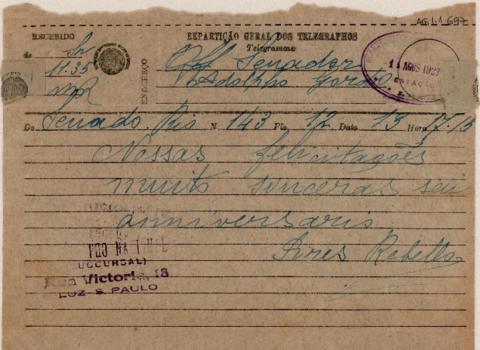 AGL1697
RECEBIDO
REPARTIÇÃO GERAL DOS TELEGRAPHOS
Telegramma
de Sr
11.35
ENDEREÇO
Senador
Adolpho Gordo
11 AGOS 192
ESTAÇÃO
De Senado Rio N 143 Pls 12 Data 13 Hora 17.15
Nossas felicitações
muito sinceras seu
anniversario
Pires Rebello
SUCCURSAL
Rua Victoria, 18
LUZ - S. PAULO